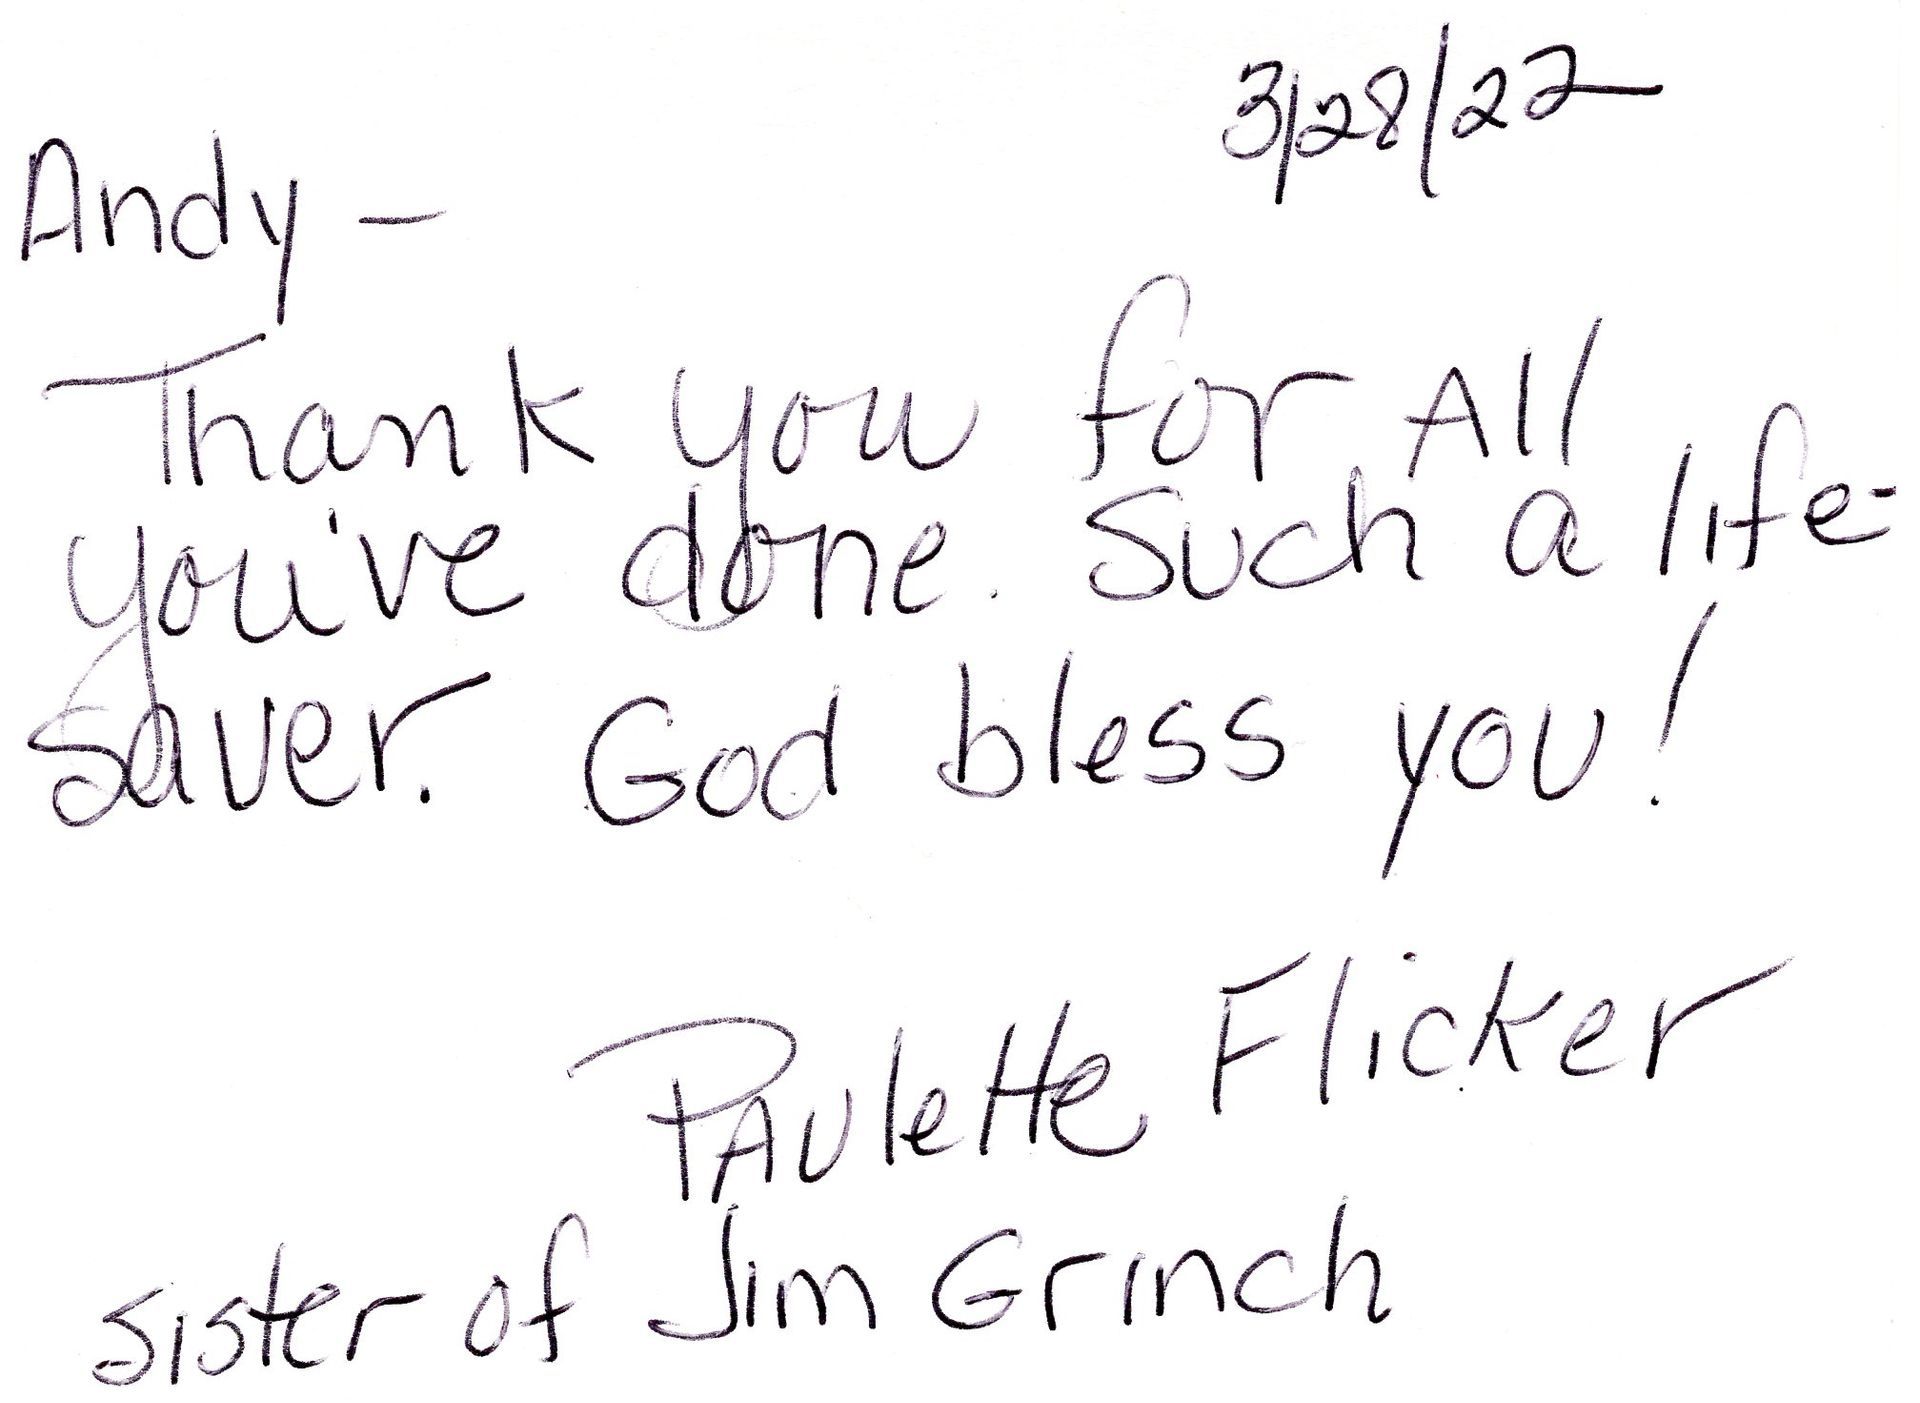 3/28/22
Andy –
Thank you for All
you've done. Such a life-
saver. God bless you!
Paulette Flicker
sister of Jim Grinch